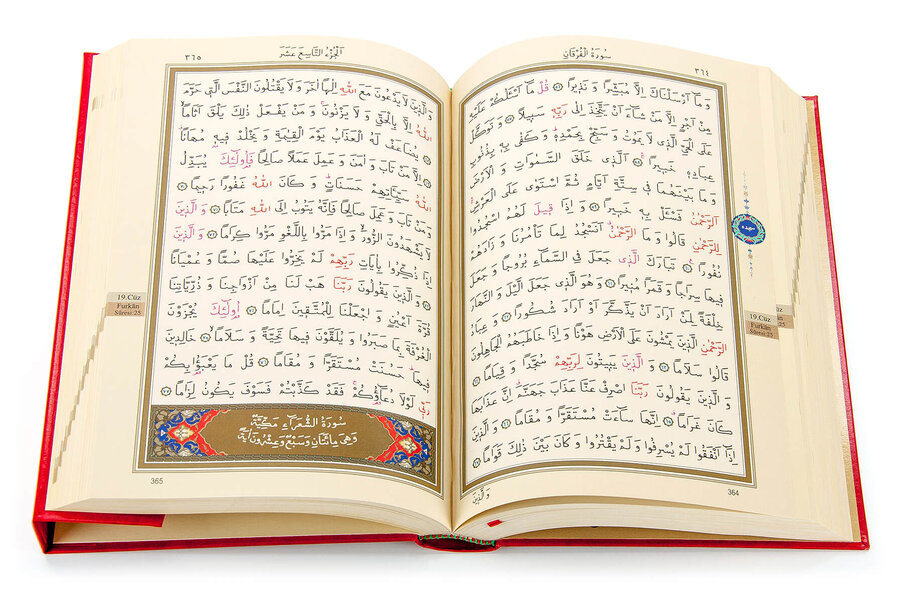 سُورَةُ الْفُرْقَانِ ٣٦٤
وَمَٓا اَرْسَلْنَاكَ اِلَّا مُبَشِّرًا وَنَذ۪يرًا ﴿٥٦﴾ قُلْ مَٓا اَسْـَٔلُكُمْ عَلَيْهِ
مِنْ اَجْرٍ اِلَّا مَنْ شَٓاءَ اَنْ يَتَّخِذَ اِلٰى رَبِّه۪ سَب۪يلًا ﴿٥٧﴾ وَتَوَكَّلْ
عَلَى الْحَيِّ الَّذ۪ي لَا يَمُوتُ وَسَبِّحْ بِحَمْدِه۪ وَكَفٰى بِه۪ بِذُنُوبِ
عِبَادِه۪ خَب۪يرًا ﴿٥٨﴾ اَلَّذ۪ي خَلَقَ السَّمٰوَاتِ وَالْاَرْضَ
وَمَا بَيْنَهُمَا ف۪ي سِتَّةِ اَيَّامٍ ثُمَّ اسْتَوٰى عَلَى الْعَرْشِ
اَلرَّحْمٰنُ فَسْـَٔلْ بِه۪ خَب۪يرًا ﴿٥٩﴾ وَاِذَا ق۪يلَ لَهُمُ اسْجُدُوا
لِلرَّحْمٰنِ قَالُوا وَمَا الرَّحْمٰنُ اَنَسْجُدُ لِمَا تَأْمُرُنَا وَزَادَهُمْ
نُفُورًا ﴿٦٠﴾ تَبَارَكَ الَّذ۪ي جَعَلَ فِي السَّمَٓاءِ بُرُوجًا وَجَعَلَ
ف۪يهَا سِرَاجًا وَقَمَرًا مُن۪يرًا ﴿٦١﴾ وَهُوَ الَّذ۪ي جَعَلَ الَّيْلَ وَالنَّهَارَ
خِلْفَةً لِمَنْ اَرَادَ اَنْ يَذَّكَّرَ اَوْ اَرَادَ شُكُورًا ﴿٦٢﴾ وَعِبَادُ
الرَّحْمٰنِ الَّذ۪ينَ يَمْشُونَ عَلَى الْاَرْضِ هَوْنًا وَاِذَا خَاطَبَهُمُ الْجَاهِلُونَ
قَالُوا سَلَامًا ﴿٦٣﴾ وَالَّذ۪ينَ يَب۪يتُونَ لِرَبِّهِمْ سُجَّدًا وَقِيَامًا ﴿٦٤﴾
وَالَّذ۪ينَ يَقُولُونَ رَبَّنَا اصْرِفْ عَنَّا عَذَابَ جَهَنَّمَ اِنَّ عَذَابَهَا
كَانَ غَرَامًا ﴿٦٥﴾ اِنَّهَا سَٓاءَتْ مُسْتَقَرًّا وَمُقَامًا ﴿٦٦﴾ وَالَّذ۪ينَ
اِذَٓا اَنْفَقُوا لَمْ يُسْرِفُوا وَلَمْ يَقْتُرُوا وَكَانَ بَيْنَ ذٰلِكَ قَوَامًا ﴿٦٧﴾
وَالَّذ۪ينَ
364
سجده
19.Cüz
Furkân
Sûresi:25
اَلْجُزْءُ التَّاسِعَ عَشَرَ ٣٦٥
وَالَّذ۪ينَ لَا يَدْعُونَ مَعَ اللّٰهِ اِلٰهًا اٰخَرَ وَلَا يَقْتُلُونَ النَّفْسَ الَّت۪ي حَرَّمَ
اللّٰهُ اِلَّا بِالْحَقِّ وَلَا يَزْنُونَ وَمَنْ يَفْعَلْ ذٰلِكَ يَلْقَ اَثَامًا ﴿٦٨﴾
يُضَاعَفْ لَهُ الْعَذَابُ يَوْمَ الْقِيٰمَةِ وَيَخْلُدْ ف۪يه۪ مُهَانًا ﴿٦٩﴾
اِلَّا مَنْ تَابَ وَاٰمَنَ وَعَمِلَ عَمَلًا صَالِحًا فَاُو۬لٰٓئِكَ يُبَدِّلُ
اللّٰهُ سَيِّـَٔاتِهِمْ حَسَنَاتٍ وَكَانَ اللّٰهُ غَفُورًا رَح۪يمًا ﴿٧٠﴾
وَمَنْ تَابَ وَعَمِلَ صَالِحًا فَاِنَّهُ يَتُوبُ اِلَى اللّٰهِ مَتَابًا ﴿٧١﴾ وَالَّذ۪ينَ
لَا يَشْهَدُونَ الزُّورَ وَاِذَا مَرُّوا بِاللَّغْوِ مَرُّوا كِرَامًا ﴿٧٢﴾ وَالَّذ۪ينَ
اِذَا ذُكِّرُوا بِاٰيَاتِ رَبِّهِمْ لَمْ يَخِرُّوا عَلَيْهَا صُمًّا وَعُمْيَانًا
﴿٧٣﴾ وَالَّذ۪ينَ يَقُولُونَ رَبَّنَا هَبْ لَنَا مِنْ اَزْوَاجِنَا وَذُرِّيَّاتِنَا
قُرَّةَ اَعْيُنٍ وَاجْعَلْنَا لِلْمُتَّق۪ينَ اِمَامًا ﴿٧٤﴾ اُو۬لٰٓئِكَ يُجْزَوْنَ
الْغُرْفَةَ بِمَا صَبَرُوا وَيُلَقَّوْنَ ف۪يهَا تَحِيَّةً وَسَلَامًا ﴿٧٥﴾ خَالِد۪ينَ
ف۪يهَا حَسُنَتْ مُسْتَقَرًّا وَمُقَامًا ﴿٧٦﴾ قُلْ مَا يَعْبَؤُ۬ا بِكُمْ
رَبّ۪ي لَوْلَا دُعَٓاؤُ۬كُمْ فَقَدْ كَذَّبْتُمْ فَسَوْفَ يَكُونُ لِزَامًا ﴿٧٧﴾
سُورَةُ الشُّعَرَٓاءِ مَكِّيَّةٌ
وَهِيَ مِائَتَانِ وَسَبْعٌ وَعِشْرُونَ اٰيَةً
365
19.Cüz
Furkân
Sûresi:25